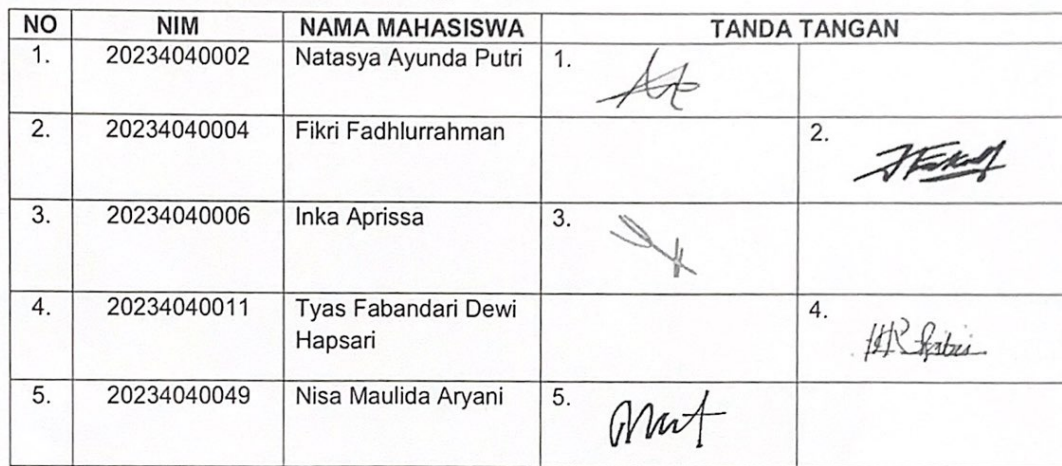 NO NIM NAMA MAHASISWA TANDA TANGAN
1. 20234040002 Natasya Ayunda Putri 1.
2. 20234040004 Fikri Fadhlurrahman 2.
3. 20234040006 Inka Aprissa 3.
4. 20234040011 Tyas Fabandari Dewi 4.
Hapsari
5. 20234040049 Nisa Maulida Aryani 5.